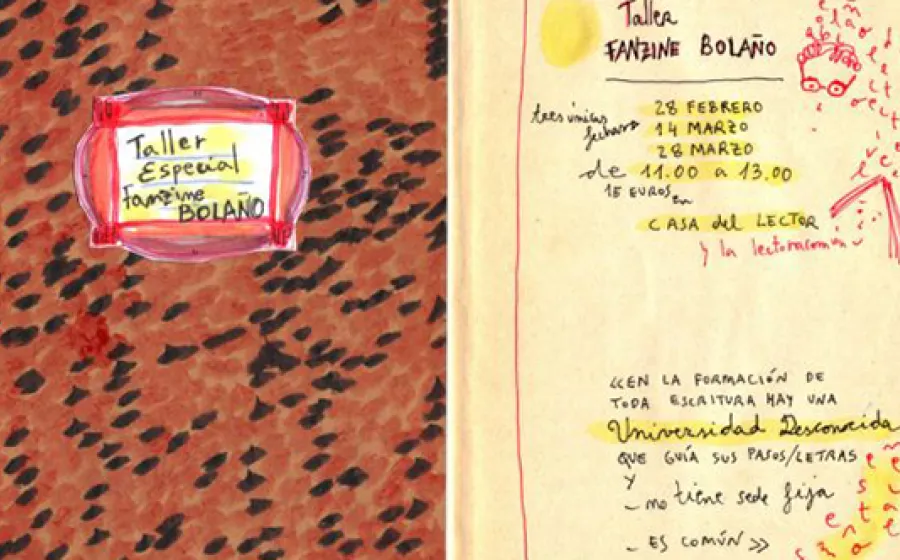 Taller
Especial
fanzine
BOLAÑO
Taller
FANZINE BOLAÑO
tres únicas
fechas
28 FEBRERO
14 MARZO
28 MARZO
de 11.00 a 13.00
15 EUROS en
CASA del LECTOR
y la lectoracomún
«EN LA FORMACIÓN DE
TODA ESCRITURA HAY UNA
Universidad Desconocida
QUE GUÍA SUS PASOS/LETRAS
y
- no tiene sede fija
- ES COMÚN»